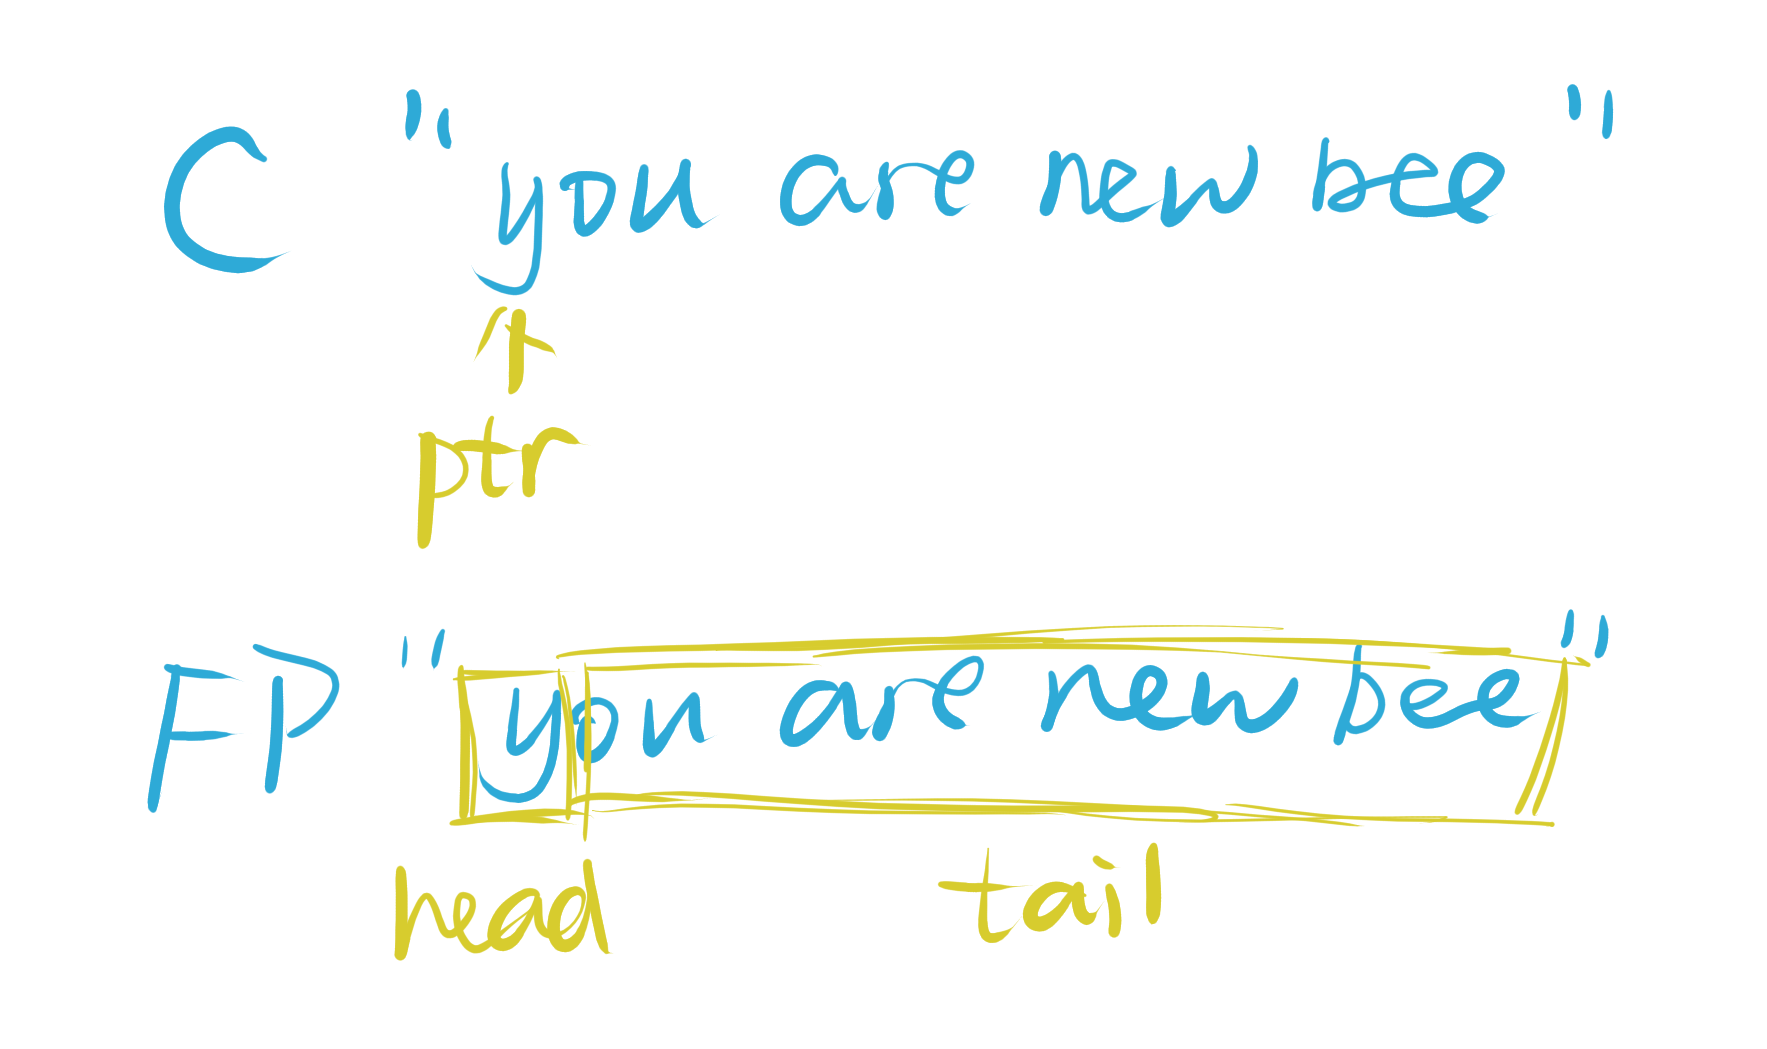 C "you are new bee"
ptr
FP "you are new bee"
head tail